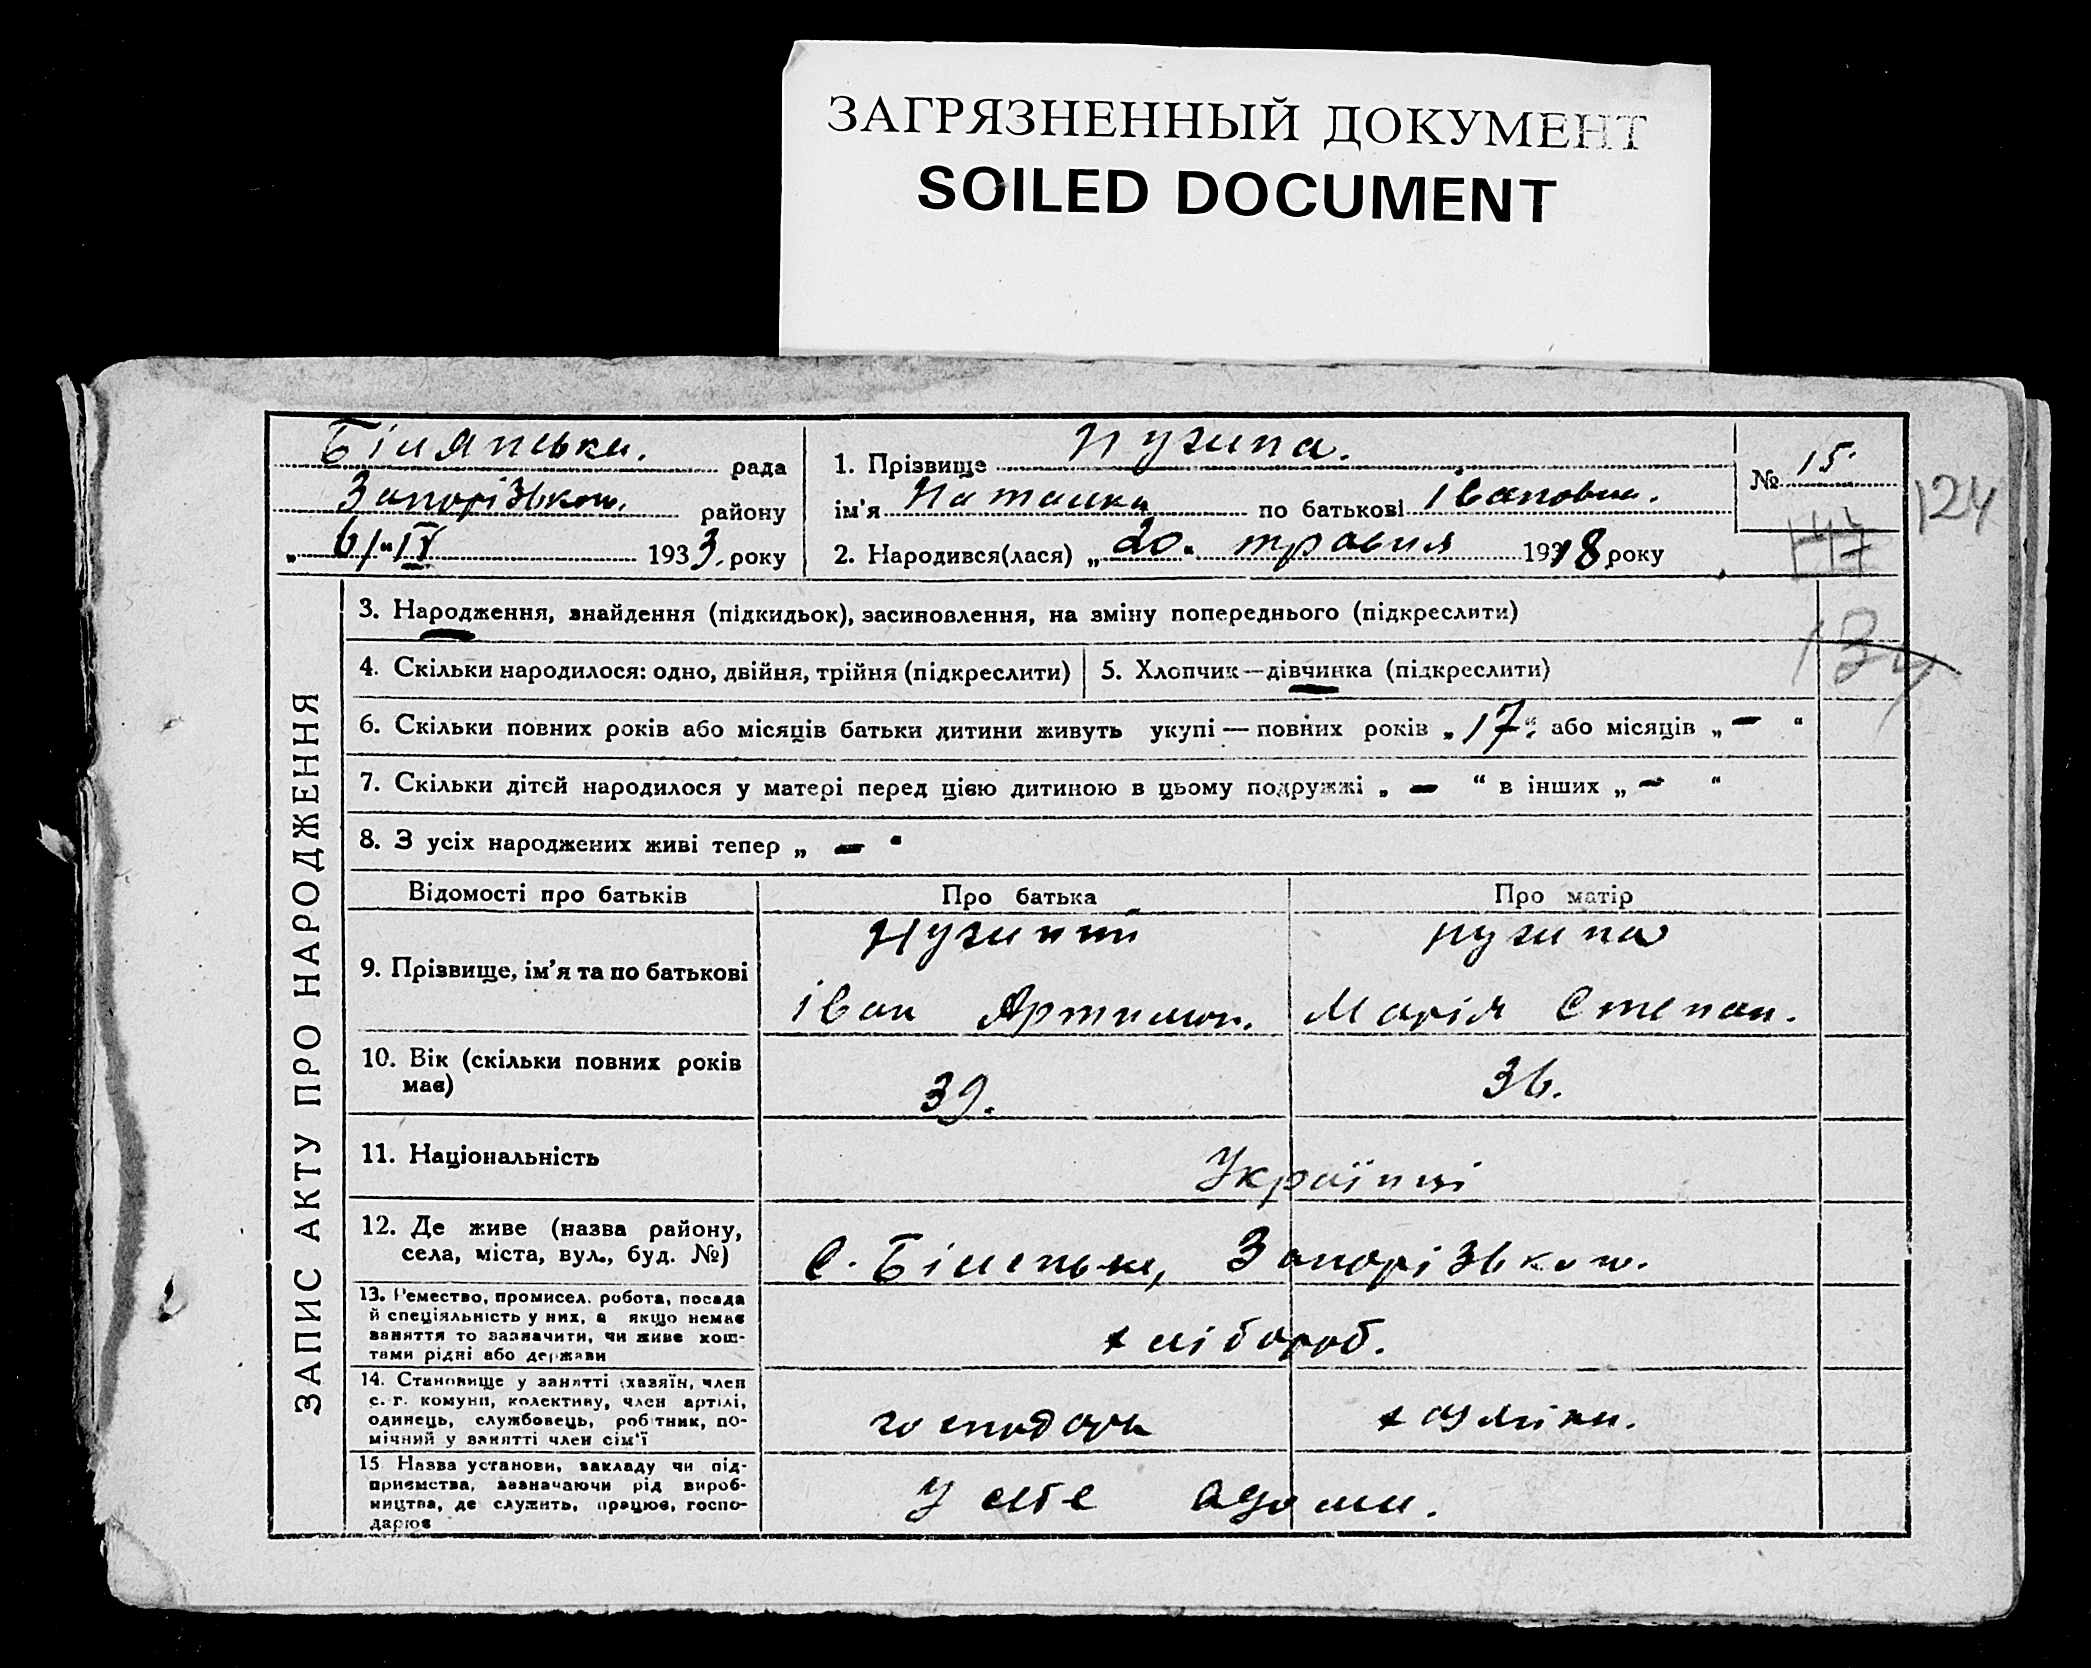 ЗАГРЯЗНЕННЫЙ ДОКУМЕНТ
SOILED DOCUMENT
Білянська. рада
Запорізьком. району
„ 6/“ IV 1933. року
1. Прізвище Нужипа.
ім'я Наташка по батькові Івановна.
2. Народився(лася) „20“ травня 1918 року
№ 15.
124
134
ЗАПИС АКТУ ПРО НАРОДЖЕННЯ
3. Народження, знайдення (підкидьок), засиновлення, на зміну попереднього (підкреслити)
4. Скільки народилося: одно, двійня, трійня (підкреслити)
5. Хлопчик—дівчинка (підкреслити)
6. Скільки повних років або місяців батьки дитини живуть укупі — повних років „17“ або місяців „—“
7. Скільки дітей народилося у матері перед цією дитиною в цьому подружжі „—“ в інших „—“
8. З усіх народжених живі тепер „—“
Відомості про батьків
Про батька
Про матір
9. Прізвище, ім'я та по батькові
Іван Артимон.
Марія Степан.
10. Вік (скільки повних років
має)
39.
36.
11. Національність
Українці
12. Де живе (назва району,
села, міста, вул., буд. №)
С. Біленьке, Запорізьком.
13. Ремество, промисел, робота, посада
й спеціяльність у них, а якщо немає
заняття то зазначити, чи живе кош-
тами рідні або держави
хлібороб.
14. Становище у занятті (хазяїн, член
с.-г. комуни, колективу, член артілі,
одинець, службовець, робітник, по-
мічний у занятті член сім'ї
господарь
хазяйка.
15 Назва установи, закладу чи під-
приємства, зазначаючи рід вироб-
ництва, де служить, працює, госпо-
дарює
У себе вдома.